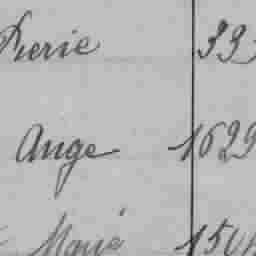 Pierie 33
Ange 1629
Marie 150